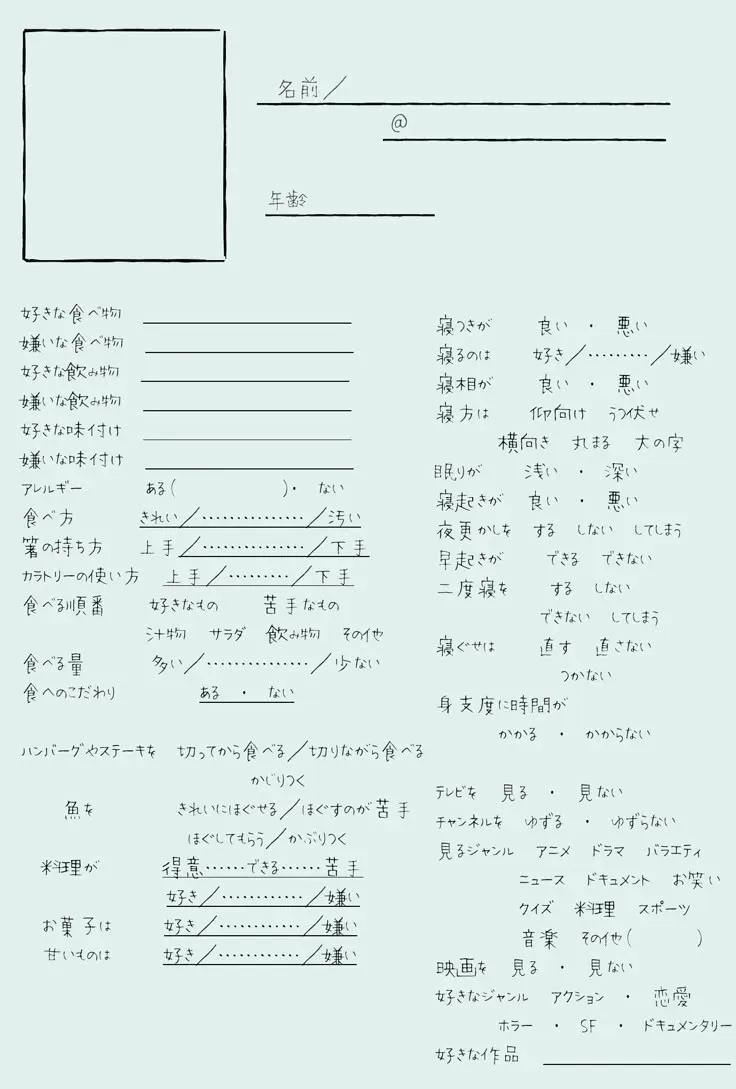 名前／
@
年齢
好きな食べ物
嫌いな食べ物
好きな飲み物
嫌いな飲み物
好きな味付け
嫌いな味付け
アレルギー ある( )・ ない
食べ方 きれい／……………／汚い
箸の持ち方 上手／……………／下手
カラトリーの使い方 上手／………／下手
食べる順番 好きなもの 苦手なもの
汁物 サラダ 飲み物 その他
食べる量 多い／……………／少ない
食へのこだわり ある ・ ない
ハンバーグやステーキを 切ってから食べる／切りながら食べる
かじりつく
魚を きれいにほぐせる／ほぐすのが苦手
ほぐしてもらう／かぶりつく
料理が 得意……できる……苦手
好き／…………／嫌い
お菓子は 好き／…………／嫌い
甘いものは 好き／…………／嫌い
寝つきが 良い ・ 悪い
寝るのは 好き／………／嫌い
寝相が 良い ・ 悪い
寝方は 仰向け うつ伏せ
横向き 丸まる 大の字
眠りが 浅い ・ 深い
寝起きが 良い ・ 悪い
夜更かしを する しない してしまう
早起きが できる できない
二度寝を する しない
できない してしまう
寝ぐせは 直す 直さない
つかない
身支度に時間が
かかる ・ かからない
テレビを 見る ・ 見ない
チャンネルを ゆずる ・ ゆずらない
見るジャンル アニメ ドラマ バラエティ
ニュース ドキュメント お笑い
クイズ 料理 スポーツ
音楽 その他( )
映画を 見る ・ 見ない
好きなジャンル アクション ・ 恋愛
ホラー ・ SF ・ ドキュメンタリー
好きな作品